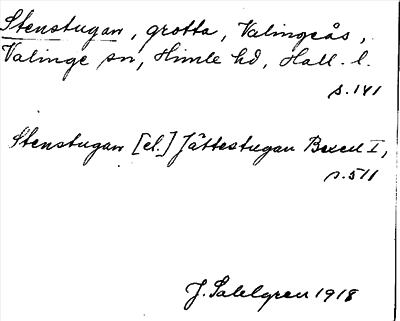 Stenstugan, grotta, Valingeås,
Valinge sn, Himle hd, Hall. l.
s. 141
Stenstugan [el.] Jättestugan Bexell I,
s. 511
J. Sahlgren 1918